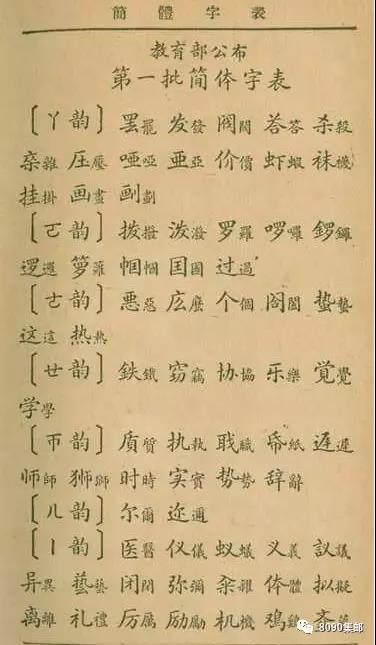 簡體字表
教育部公布
第一批简体字表
〔ㄚ韵〕罢罷 发發 阀閥 荅答 杀殺
杂雜 压壓 唖啞 亜亞 价價 虾蝦 袜襪
挂掛 画畫 刬劃
〔ㄛ韵〕拨撥 泼潑 罗羅 啰囉 鑼
逻邏 箩籮 帼幗 囯國 过過
〔ㄜ韵〕悪惡 庅麼 个個 阁閣 蛰蟄
这這 热熱
〔ㄝ韵〕鉄鐵 窃竊 协協 乐樂 覚覺
学學
〔ㄭ韵〕质質 执執 職 帋紙 遅遲
师師 狮獅 时時 实實 势勢 辞辭
〔ㄦ韵〕尔爾 迩邇
〔ㄧ韵〕医醫 仪儀 蚁蟻 义義 議
异異 藝 闭閉 弥彌 籴糴 体體 拟擬
离離 礼禮 厉厲 励勵 机機 鸡雞 齐齊
8090集部